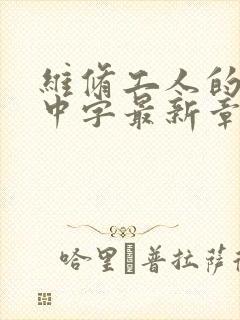 維脩工人的
中字最新章
哈里普拉薩